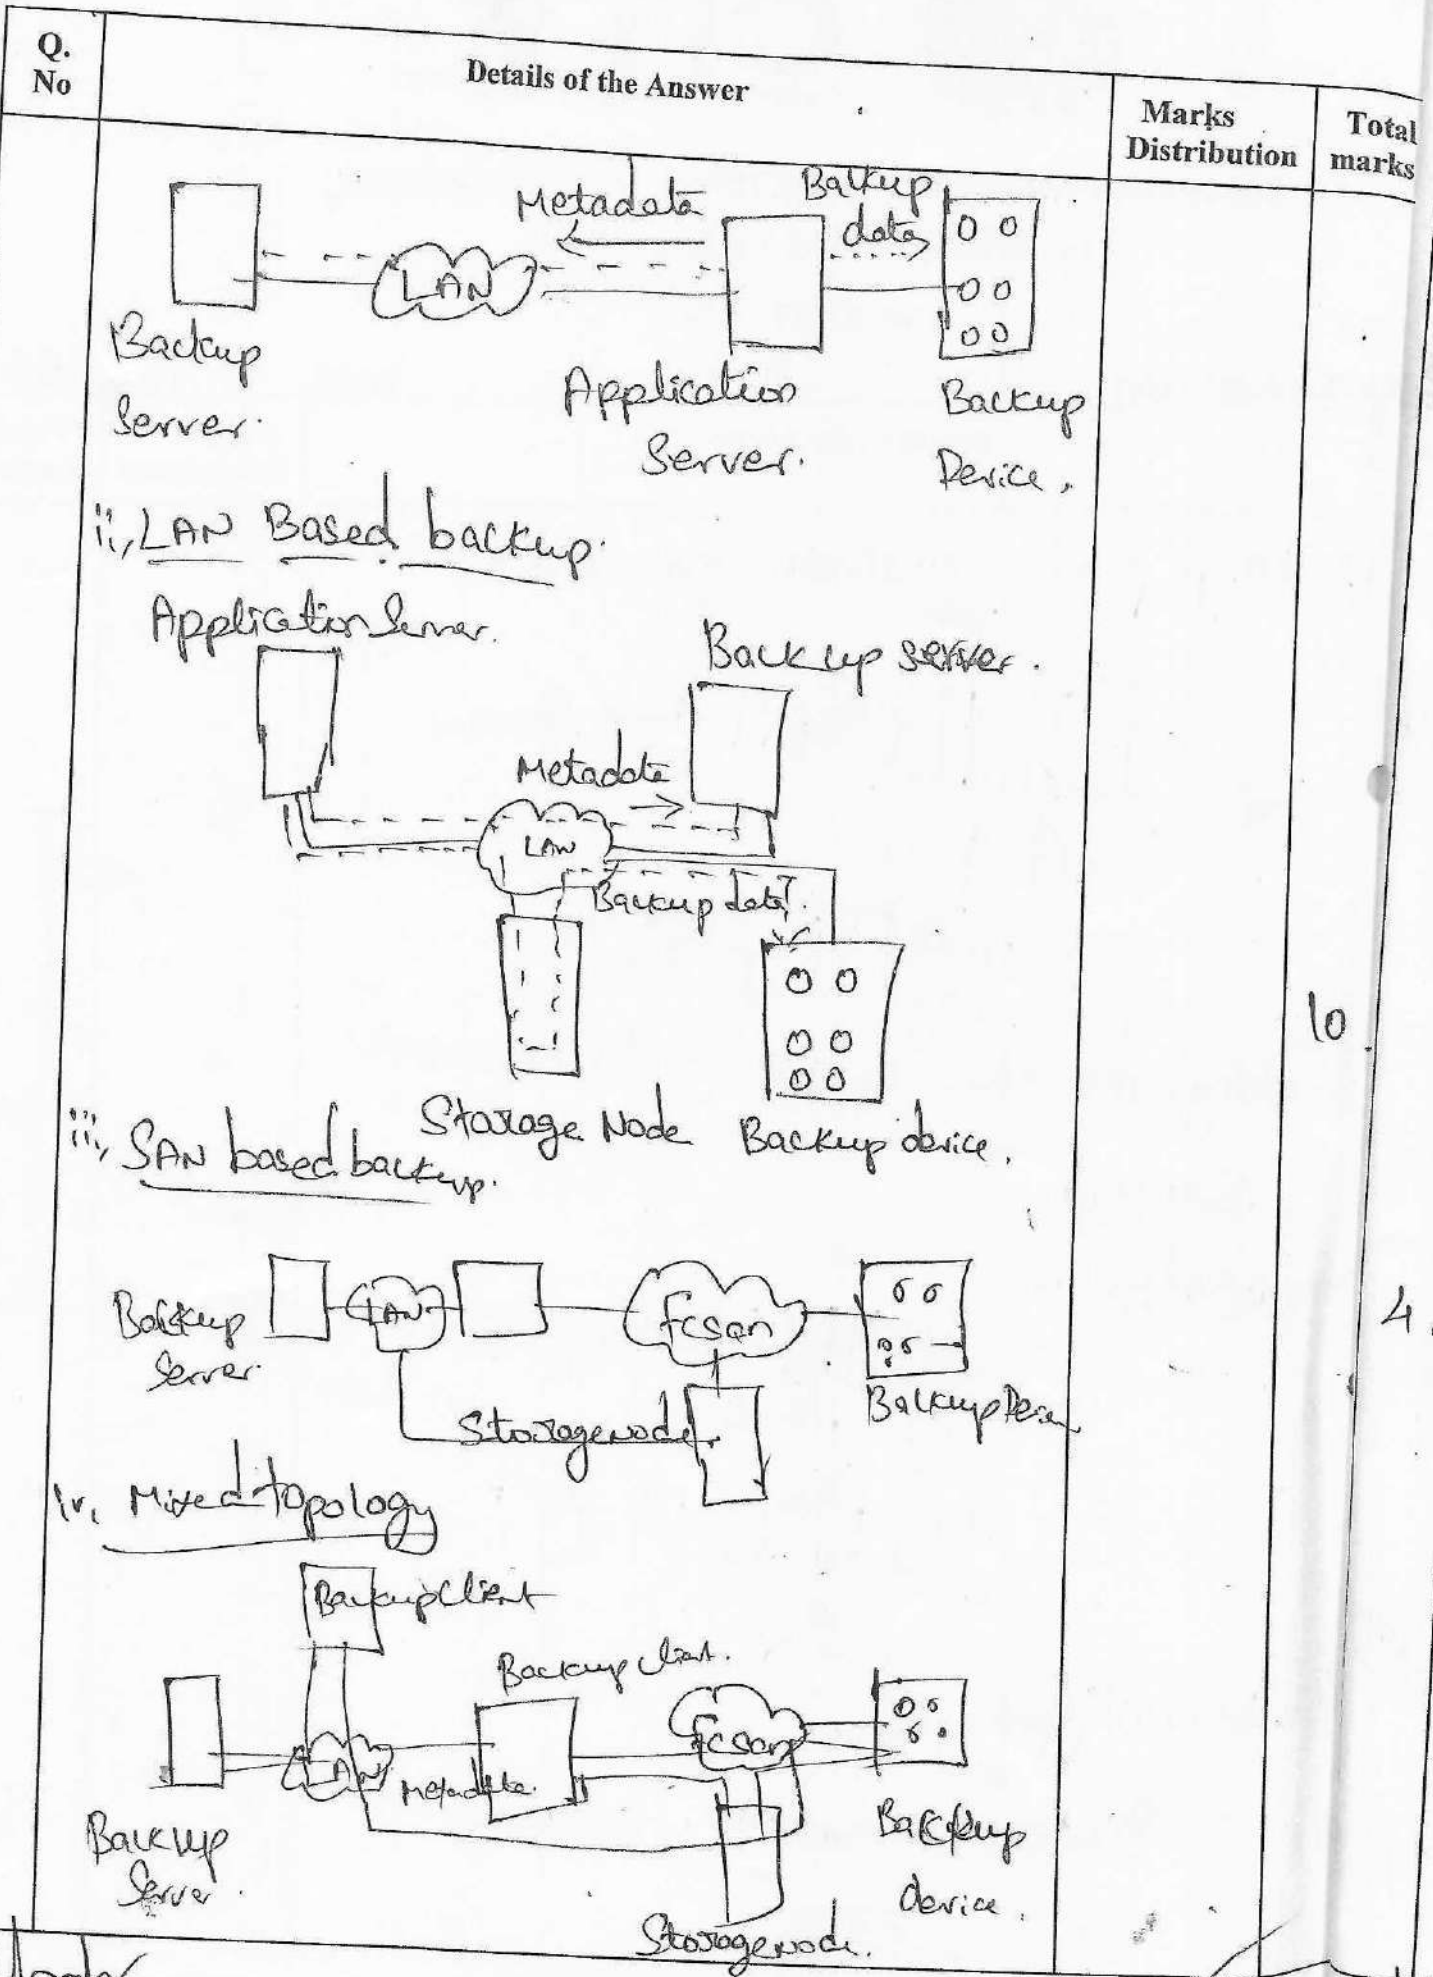 Q.
No
Details of the Answer
Marks
Distribution
Total
marks
Metadata
Backup
data
LAN
Backup
Server.
Application
Server.
Backup
Device.
ii, LAN Based backup.
Application Server.
Backup server.
Metadata
LAN
Backup data
10
Storage Node
Backup device.
iii, SAN based backup.
Backup
Server.
LAN
Fcsan
4
Storagenode
Backup
iv, Mixed topology
Backup Client
Backup client.
Fcsan
LAN
Metadata
Backup
Server.
Backup
device.
Storagenode.